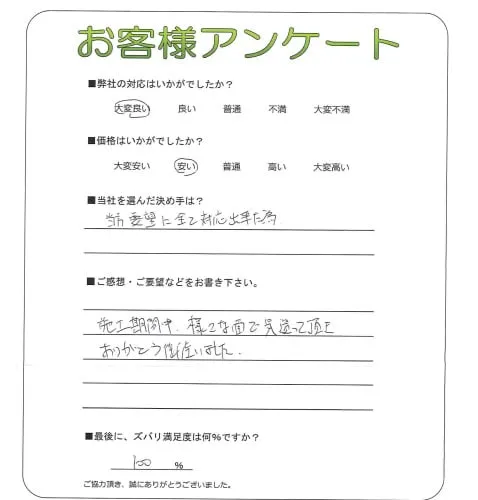 お客様アンケート
■弊社の対応はいかがでしたか？
大変良い 良い 普通 不満 大変不満
■価格はいかがでしたか？
大変安い 安い 普通 高い 大変高い
■当社を選んだ決め手は？
当方要望に全て対応出来た為
■ご感想・ご要望などをお書き下さい。
施工期間中、様々な面で気遣って頂き
ありがとう御座いました。
■最後に、ズバリ満足度は何％ですか？
100 ％
ご協力頂き、誠にありがとうございました。